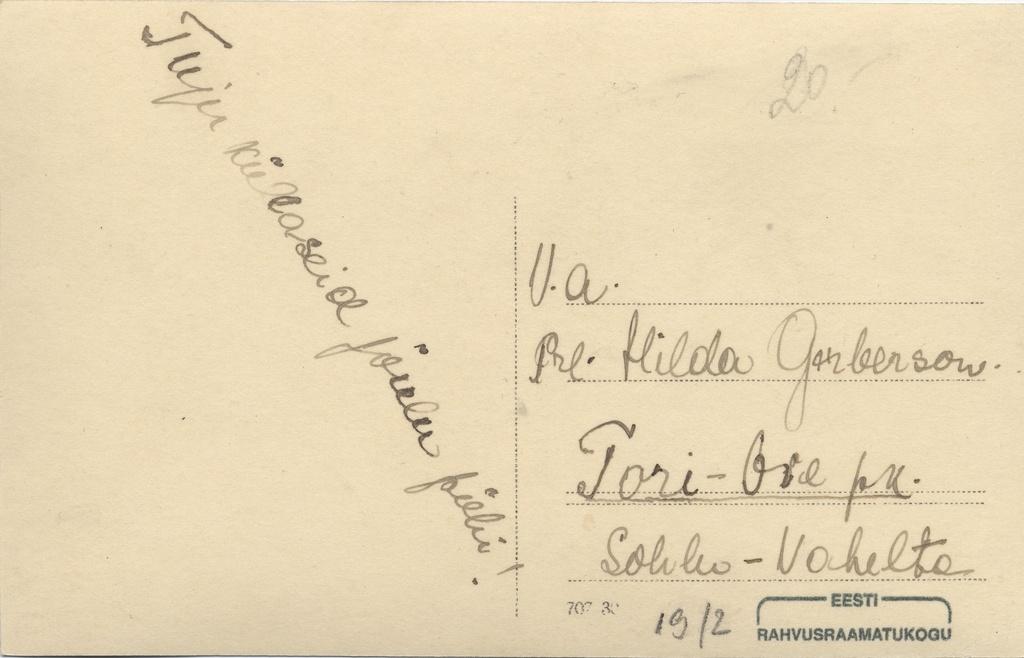 Tuju küllaseid jõulu pühi!
20.-
V. a.
Prl. Hilda Gerberson.
Tori-Ore pk.
Sohlu-Vahelta
707 30
19/2
EESTI
RAHVUSRAAMATUKOGU